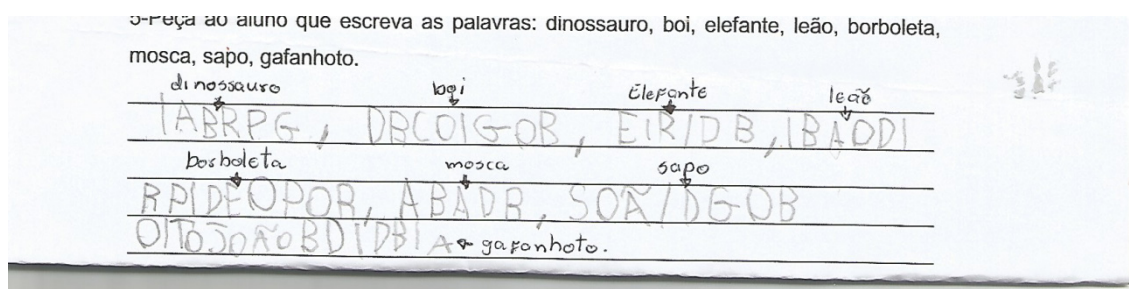 5-Peça ao aluno que escreva as palavras: dinossauro, boi, elefante, leão, borboleta,
mosca, sapo, gafanhoto.
dinossauro boi Elefante leão
IABRPG, DBCOIGOB, EIR/DB, IBAODI
borboleta mosca sapo
RPIDEOPOR, ABADB, SOÃ/DGOB
OITOJOÃOBDI'DBIA gafanhoto.